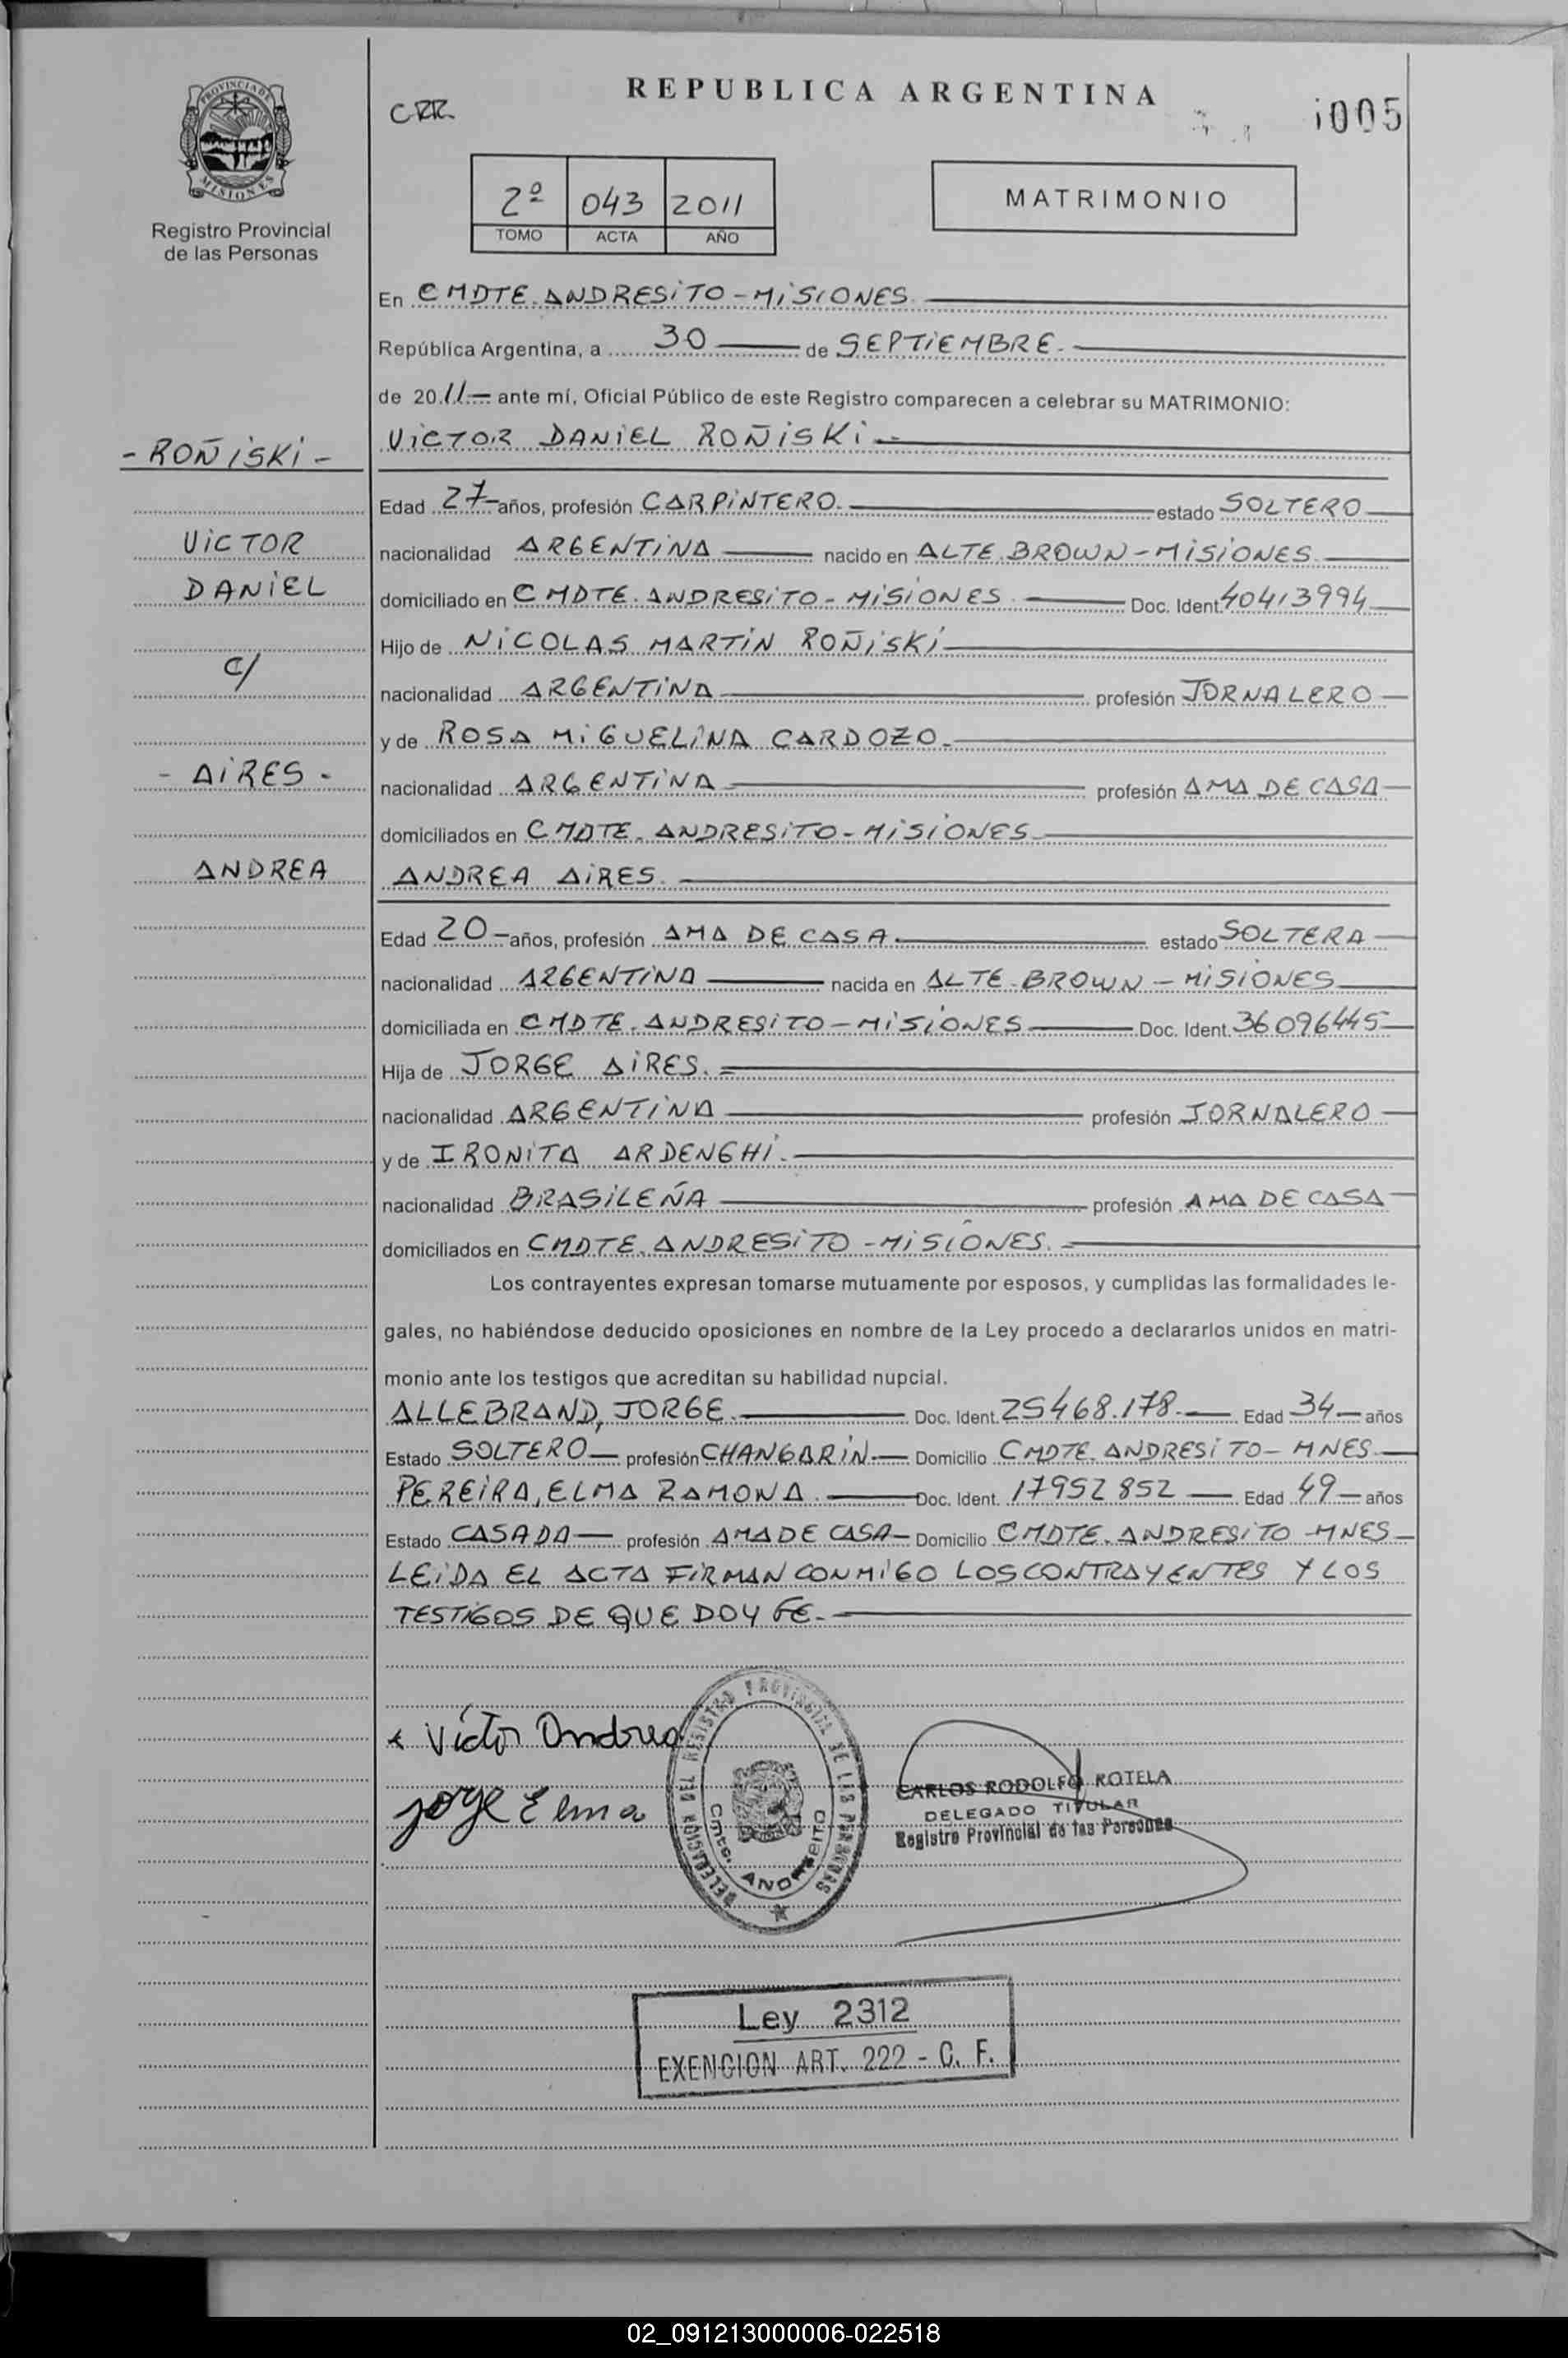 REPUBLICA ARGENTINA
CRR
005
PROVINCIA DE MISIONES
Registro Provincial
de las Personas
2º 043 2011
TOMO ACTA AÑO
MATRIMONIO
En CMDTE. ANDRESiTO - MiSiONES.
República Argentina, a 30 de SEPTiEMBRE.-
de 2011.- ante mí, Oficial Público de este Registro comparecen a celebrar su MATRIMONIO:
- ROÑiSKi -
ViCTOR DANiEL ROÑiSKi.-
Edad 27 años, profesión CARPiNTERO. estado SOLTERO
ViCTOR
nacionalidad ARGENTiNA nacido en ALTE. BROWN - MiSiONES.
DANiEL
domiciliado en CMDTE. ANDRESiTO - MiSiONES Doc. Ident. 40413994
Hijo de NiCOLAS MARTiN ROÑiSKi
C/
nacionalidad ARGENTiNA profesión JORNALERO
y de ROSA MiGUELiNA CARDOZO.
- AiRES -
nacionalidad ARGENTiNA profesión AMA DE CASA
domiciliados en CMDTE. ANDRESiTO - MiSiONES
ANDREA
ANDREA AiRES.
Edad 20 años, profesión AMA DE CASA. estado SOLTERA
nacionalidad ARGENTiNA nacida en ALTE. BROWN - MiSiONES
domiciliada en CMDTE. ANDRESiTO - MiSiONES Doc. Ident. 36096445
Hija de JORGE AiRES.
nacionalidad ARGENTiNA profesión JORNALERO
y de IRONiTA ARDENGHi.
nacionalidad BRASiLEÑA profesión AMA DE CASA
domiciliados en CMDTE. ANDRESiTO - MiSiONES.
Los contrayentes expresan tomarse mutuamente por esposos, y cumplidas las formalidades le-
gales, no habiéndose deducido oposiciones en nombre de la Ley procedo a declararlos unidos en matri-
monio ante los testigos que acreditan su habilidad nupcial.
ALLEBRAND, JORGE. Doc. Ident. 25468.178.- Edad 34 años
Estado SOLTERO profesión CHANGARiN Domicilio CMDTE. ANDRESiTO - MNES
PEREiRA, ELMA RAMONA. Doc. Ident. 17952852 Edad 49 años
Estado CASADA profesión AMA DE CASA Domicilio CMDTE. ANDRESiTO - MNES
LEiDA EL ACTA FiRMAN CONMiGO LOS CONTRAYENTES Y LOS
TESTiGOS DE QUE DOY FE.-
Víctor Andrea
Jorge Elma
DELEGACION DEL REGISTRO PROVINCIAL DE LAS PERSONAS
Cmte. ANDRESITO
CARLOS RODOLFO ROTELA
DELEGADO TITULAR
Registro Provincial de las Personas
Ley 2312
EXENCION ART. 222 - C. F.
02_091213000006-022518